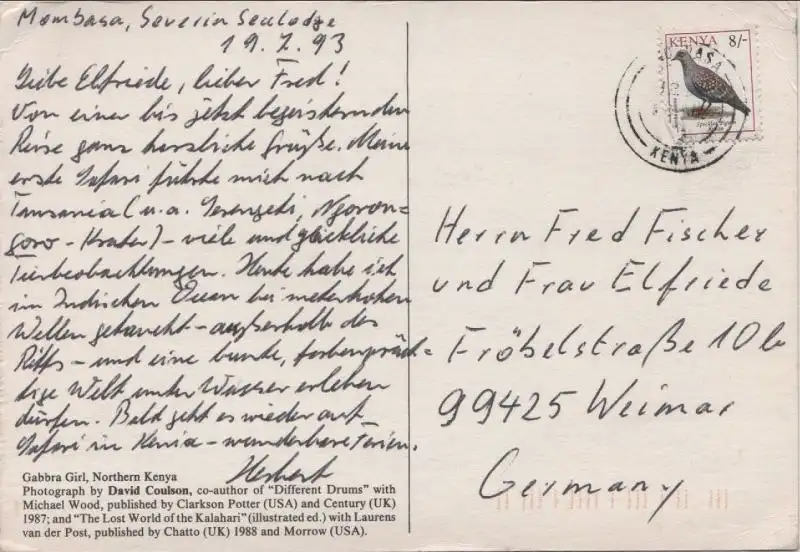 Mombasa, Severin Sealodge
19.7.93
Liebe Elfriede, lieber Fred!
Von einer bis jetzt begeisternden
Reise ganz herzliche Grüße. Meine
erste Safari führte mich nach
Tansania (u.a. Serengeti, Ngoron=
goro-Krater) - viele und glückliche
Tierbeobachtungen. Heute habe ich
im Indischen Ozean bei meterhohen
Wellen getaucht - außerhalb des
Riffs - und eine bunte, farbenpräch=
tige Welt unter Wasser erleben
dürfen. Bald geht es wieder auf
Safari in Kenia - wunderbare Ferien.
Herbert
Gabbra Girl, Northern Kenya
Photograph by David Coulson, co-author of "Different Drums" with
Michael Wood, published by Clarkson Potter (USA) and Century (UK)
1987; and "The Lost World of the Kalahari" (illustrated ed.) with Laurens
van der Post, published by Chatto (UK) 1988 and Morrow (USA).
KENYA 8/-
KENYA
Herrn Fred Fischer
und Frau Elfriede
Fröbelstraße 10b
99425 Weimar
Germany